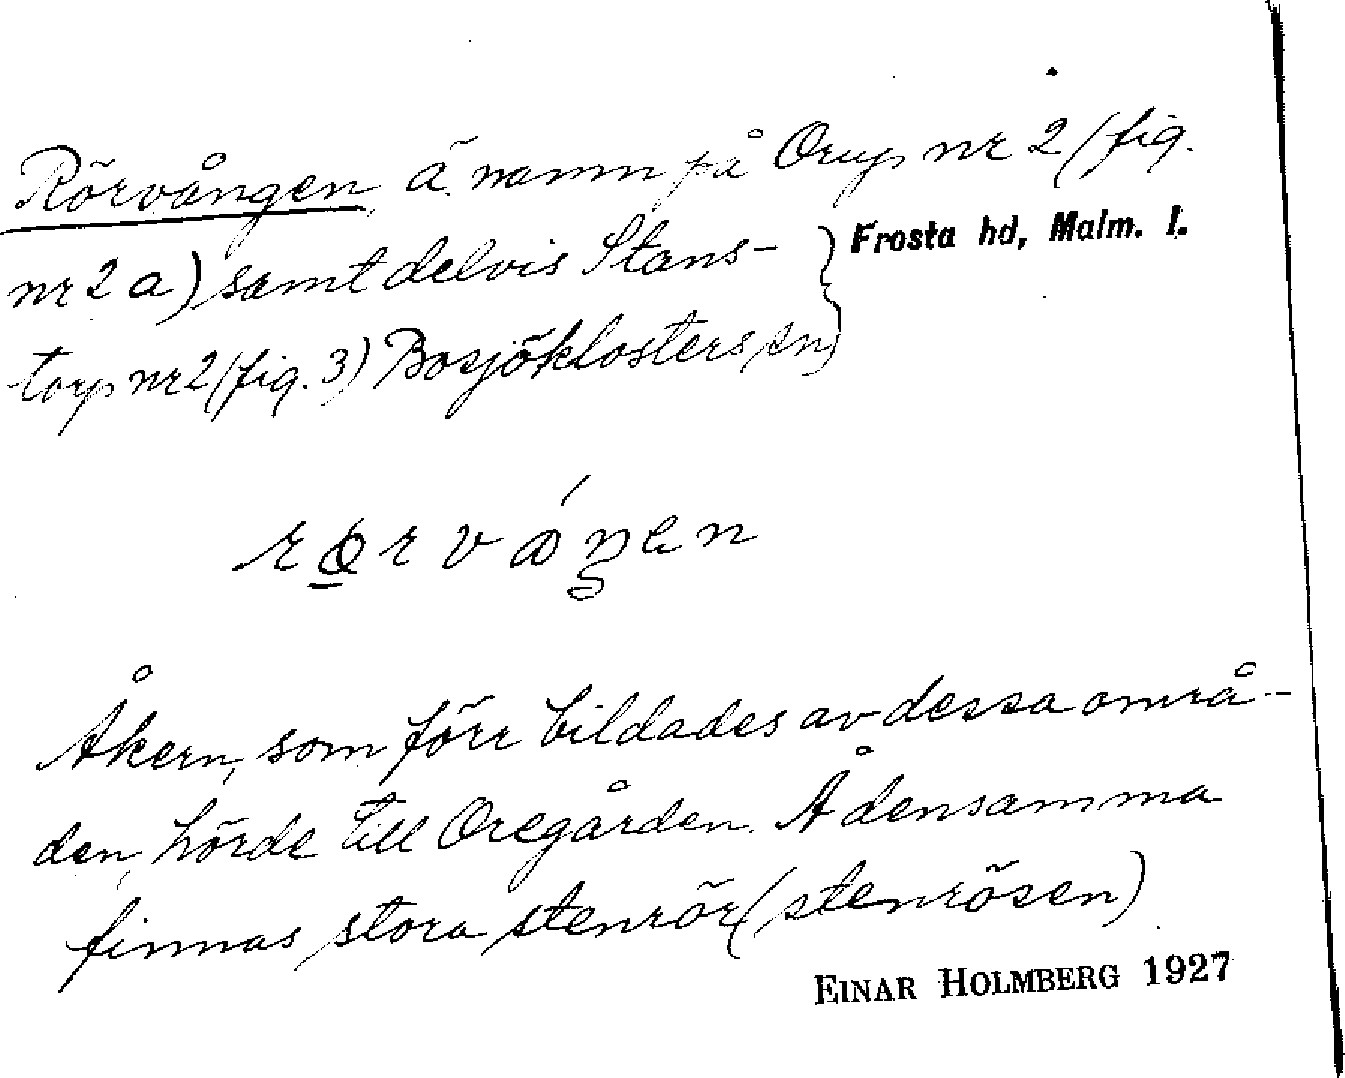 Rörvången, ä. namn på Orup nr 2 (fig.
nr 2 a) samt delvis Stans-
torp nr 2 (fig. 3) Bosjöklosters sn,
Frosta hd, Malm. l.
Åkern, som förr bildades av dessa områ-
den, hörde till Oregården. Å densamma
finnas stora stenrör (stenrösen)
EINAR HOLMBERG 1927